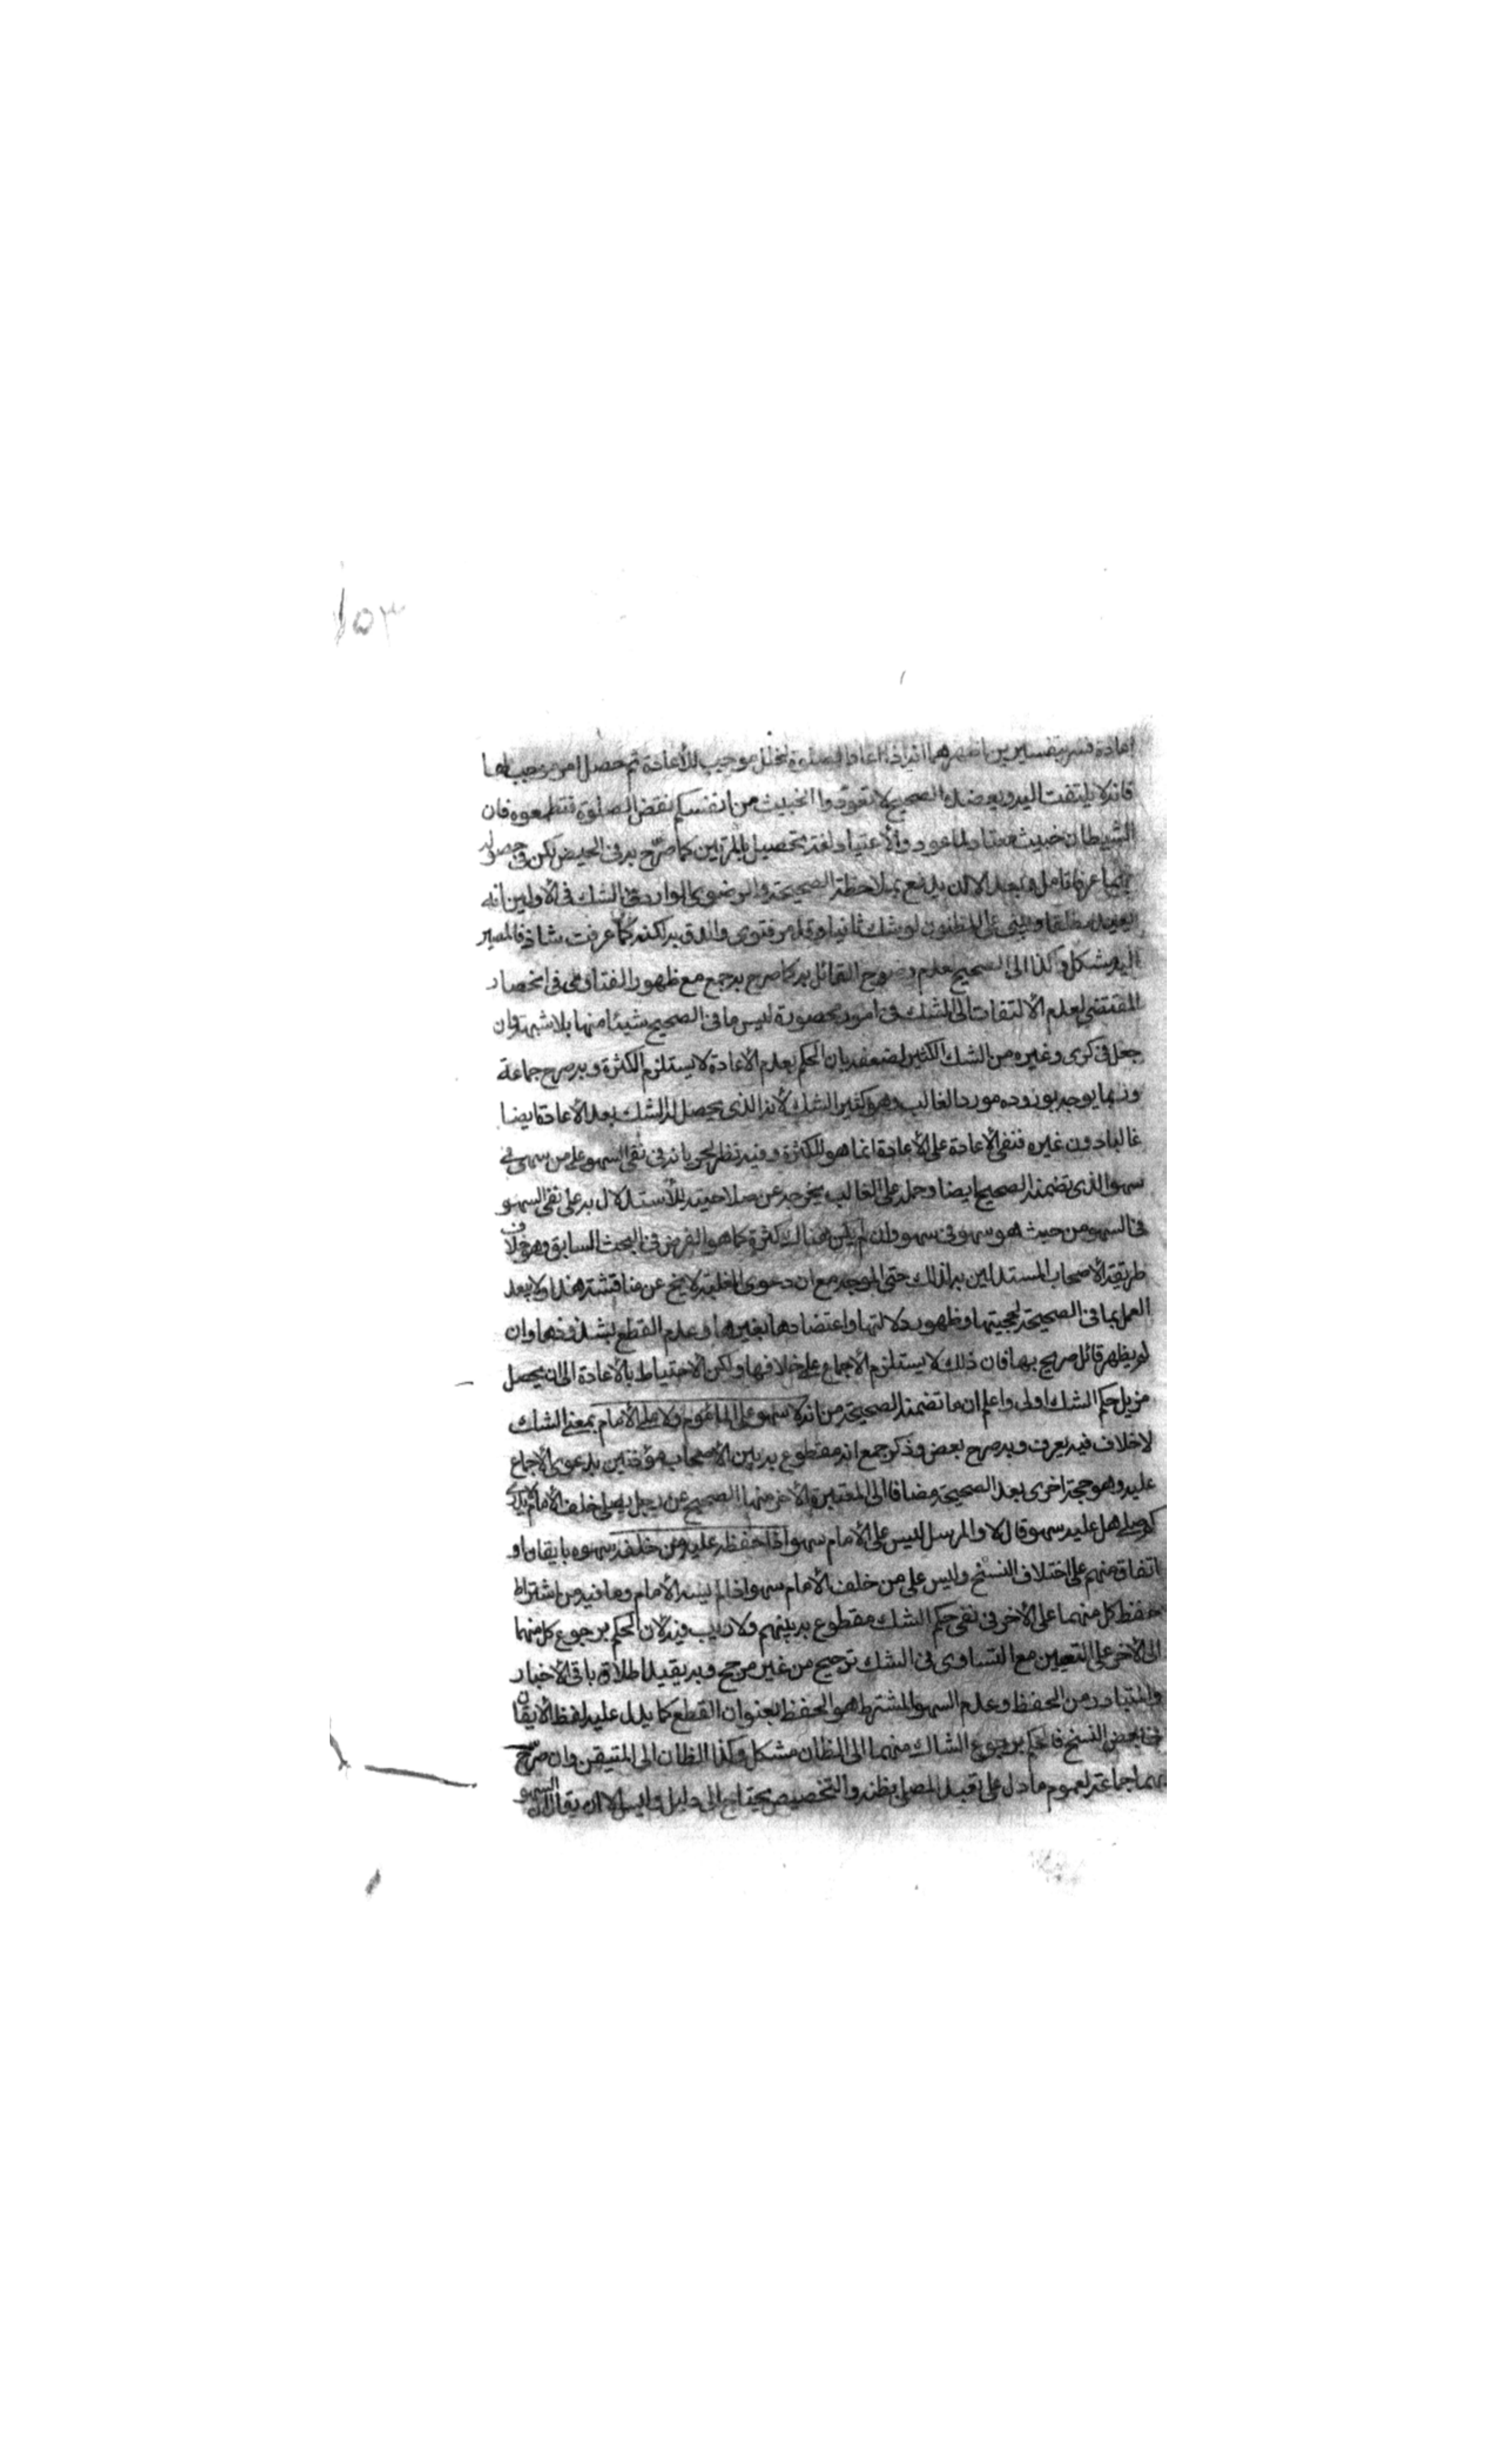 ١٥٣
اعادة فسر بتفسيرين اظهرهما انه اذا اعاد الصلوة لخلل موجب للأعادة ثم حصل امر موجب لها
فانه لا يلتفت اليه ويعضده الصحيح لا تعودوا الخبيث من انفسكم نقض الصلوة فتطمعوه فان
الشيطان خبيث معتاد لما عود والأعتياد لغة تحصيل بالمرتين كما صرح به في الحيض لكن في حصوله
بهما عرفا تامل وبعد الا ان يدفع بملاحظة الصحيحة والرضوى الوارد في الشك في الأولين انه
يعيد مطلقا ويبنى على المظنون لو شك ثانيا وقد مر فتوى والدق به لكنه كما عرفت شاذ فالمصير
اليه مشكل وكذا الى الصحيح لعدم وضوح القائل به كما صرح به جمع مع ظهور الفتاوى في انحصار
المقتضى لعدم الألتفات الى الشك في امور محصورة ليس ما في الصحيح شيئا منها بلا شبهة وان
جعل في كرى وغيره من الشك الكثير لضعفه بان الحكم بعدم الأعادة لا يستلزم الكثرة وبه صرح جماعة
وربما يوجه بوروده مورد الغالب وهو كثير الشك لأنه الذى يحصل له الشك بعد الأعادة ايضا
غالبا دون غيره فنفى الأعادة على الأعادة انما هو للكثرة وفيه نظر لجريانه في نفى السهو على من سهى في
سهو الذى تضمنه الصحيح ايضا وحمله على الغالب يخرجه عن صلاحيته للأستدلال به على نفى السهو
في السهو من حيث هو سهو في سهو وان لم يكن هناك كثرة كما هو الفرض في البحث السابق وهو خلاف
طريقة الأصحاب المستدلين به لذلك حتى الموجه مع ان دعوى الغلبة لا يخ عن مناقشة هذا ولا يبعد
العمل بما في الصحيحة لحجيتها وظهور دلالتها واعتضادها بغيرها وعدم القطع بشذوذها وان
لم يظهر قائل صريح بها فان ذلك لا يستلزم الأجماع على خلافها ولكن الاحتياط بالأعادة الى ان يحصل
مزيل حكم الشك اولى واعلم ان ما تضمنه الصحيحة من انه لا سهو على المأموم ولا على الأمام بمعنى الشك
لا خلاف فيه يعرف وبه صرح بعض وذكر جمع انه مقطوع به بين الأصحاب مؤذنين بدعوى الأجماع
عليه وهو حجة اخرى بعد الصحيحة مضافا الى المعتبرة الأخر منها الصحيح عن رجل يصلى خلف الأمام لا يدرى
كم صلى هل عليه سهو قال لا والمرسل ليس على الأمام سهو اذا حفظ عليه من خلفه سهوه بايقان او
اتفاق منهم على اختلاف النسخ وليس على من خلف الأمام سهو اذا لم يسه الأمام وما فيه من اشتراط
حفظ كل منهما على الأخر في نفى حكم الشك مقطوع به بينهم ولا ريب فيه لأن الحكم برجوع كل منهما
الى الأخر على التعيين مع التساوى في الشك ترجيح من غير مرجح وبه يقيد اطلاق باقى الأخبار
والمتبادر من الحفظ وعدم السهو المشترط هو الحفظ بعنوان القطع كما يدل عليه لفظ الأيقان
في بعض النسخ فالحكم برجوع الشاك منهما الى الظان مشكل وكذا الظان الى المتيقن وان صرح
بهما جماعة لعموم ما دل على تعبد المصلى بظنه والتخصيص يحتاج الى دليل وليس الا ان يقال ان السهو